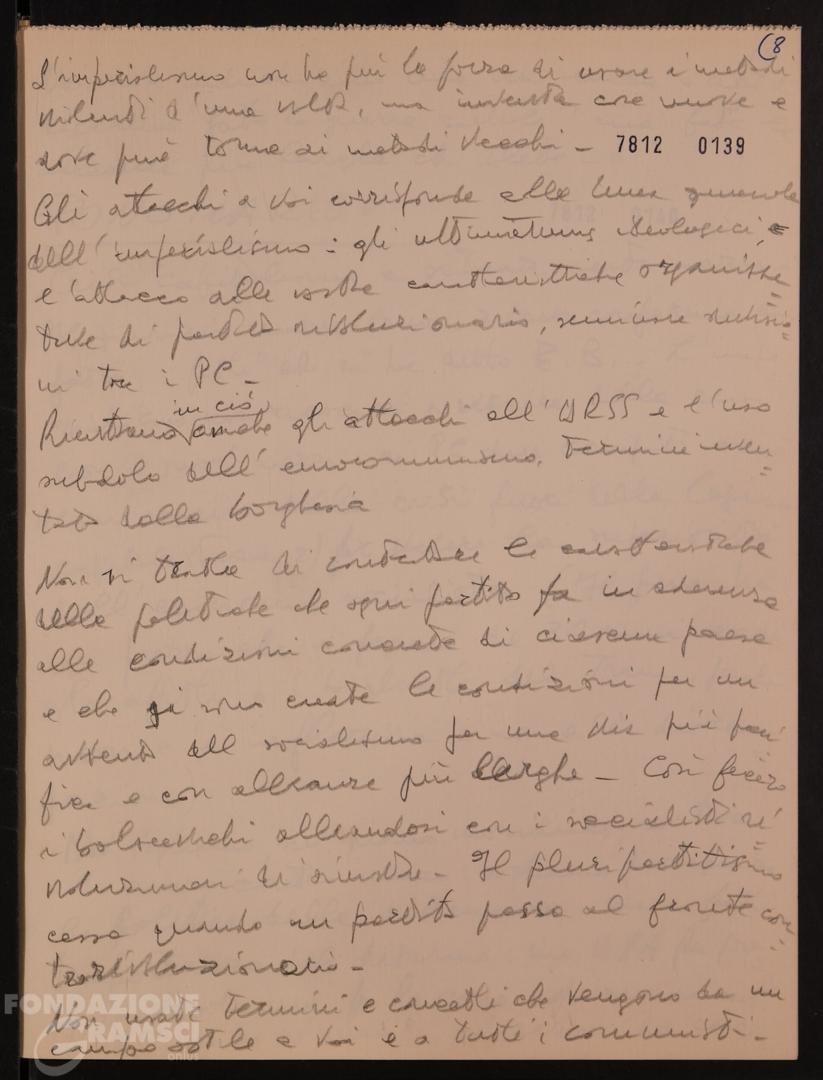 (8
L'imperialismo non ha più la forza di usare i metodi
violenti d'una volta, ma inventa cose nuove e
dove può torna ai metodi vecchi – 7812 0139
Gli attacchi a voi corrisponde alla linea generale
dell'imperialismo: gli ultimatums ideologici, e
l'attacco alle vostre caratteristiche organizza=
tive di partito rivoluzionario, seminare divisio=
ni tra i PC –
Rientrano in ciò anche gli attacchi all'URSS e l'uso
subdolo dell'eurocomunismo, termini inven=
tato dalla borghesia
Non si tratta di contestare le caratteristiche
della politiche che ogni partito fa in aderenza
alle condizioni concrete di ciascun paese
e che si sono create le condizioni per un
avvento del socialismo per una via più paci
fica e con alleanze più larghe – Così fecero
i bolscevichi alleandosi con i socialisti ri=
voluzionari di sinistra – Il pluripartitismo
cessa quando un partito passa al fronte con=
trorivoluzionario –
Non usate termini e concetti che vengono da un
campo ostile a voi e a tutti i comunisti –
FONDAZIONE
GRAMSCI
onlus